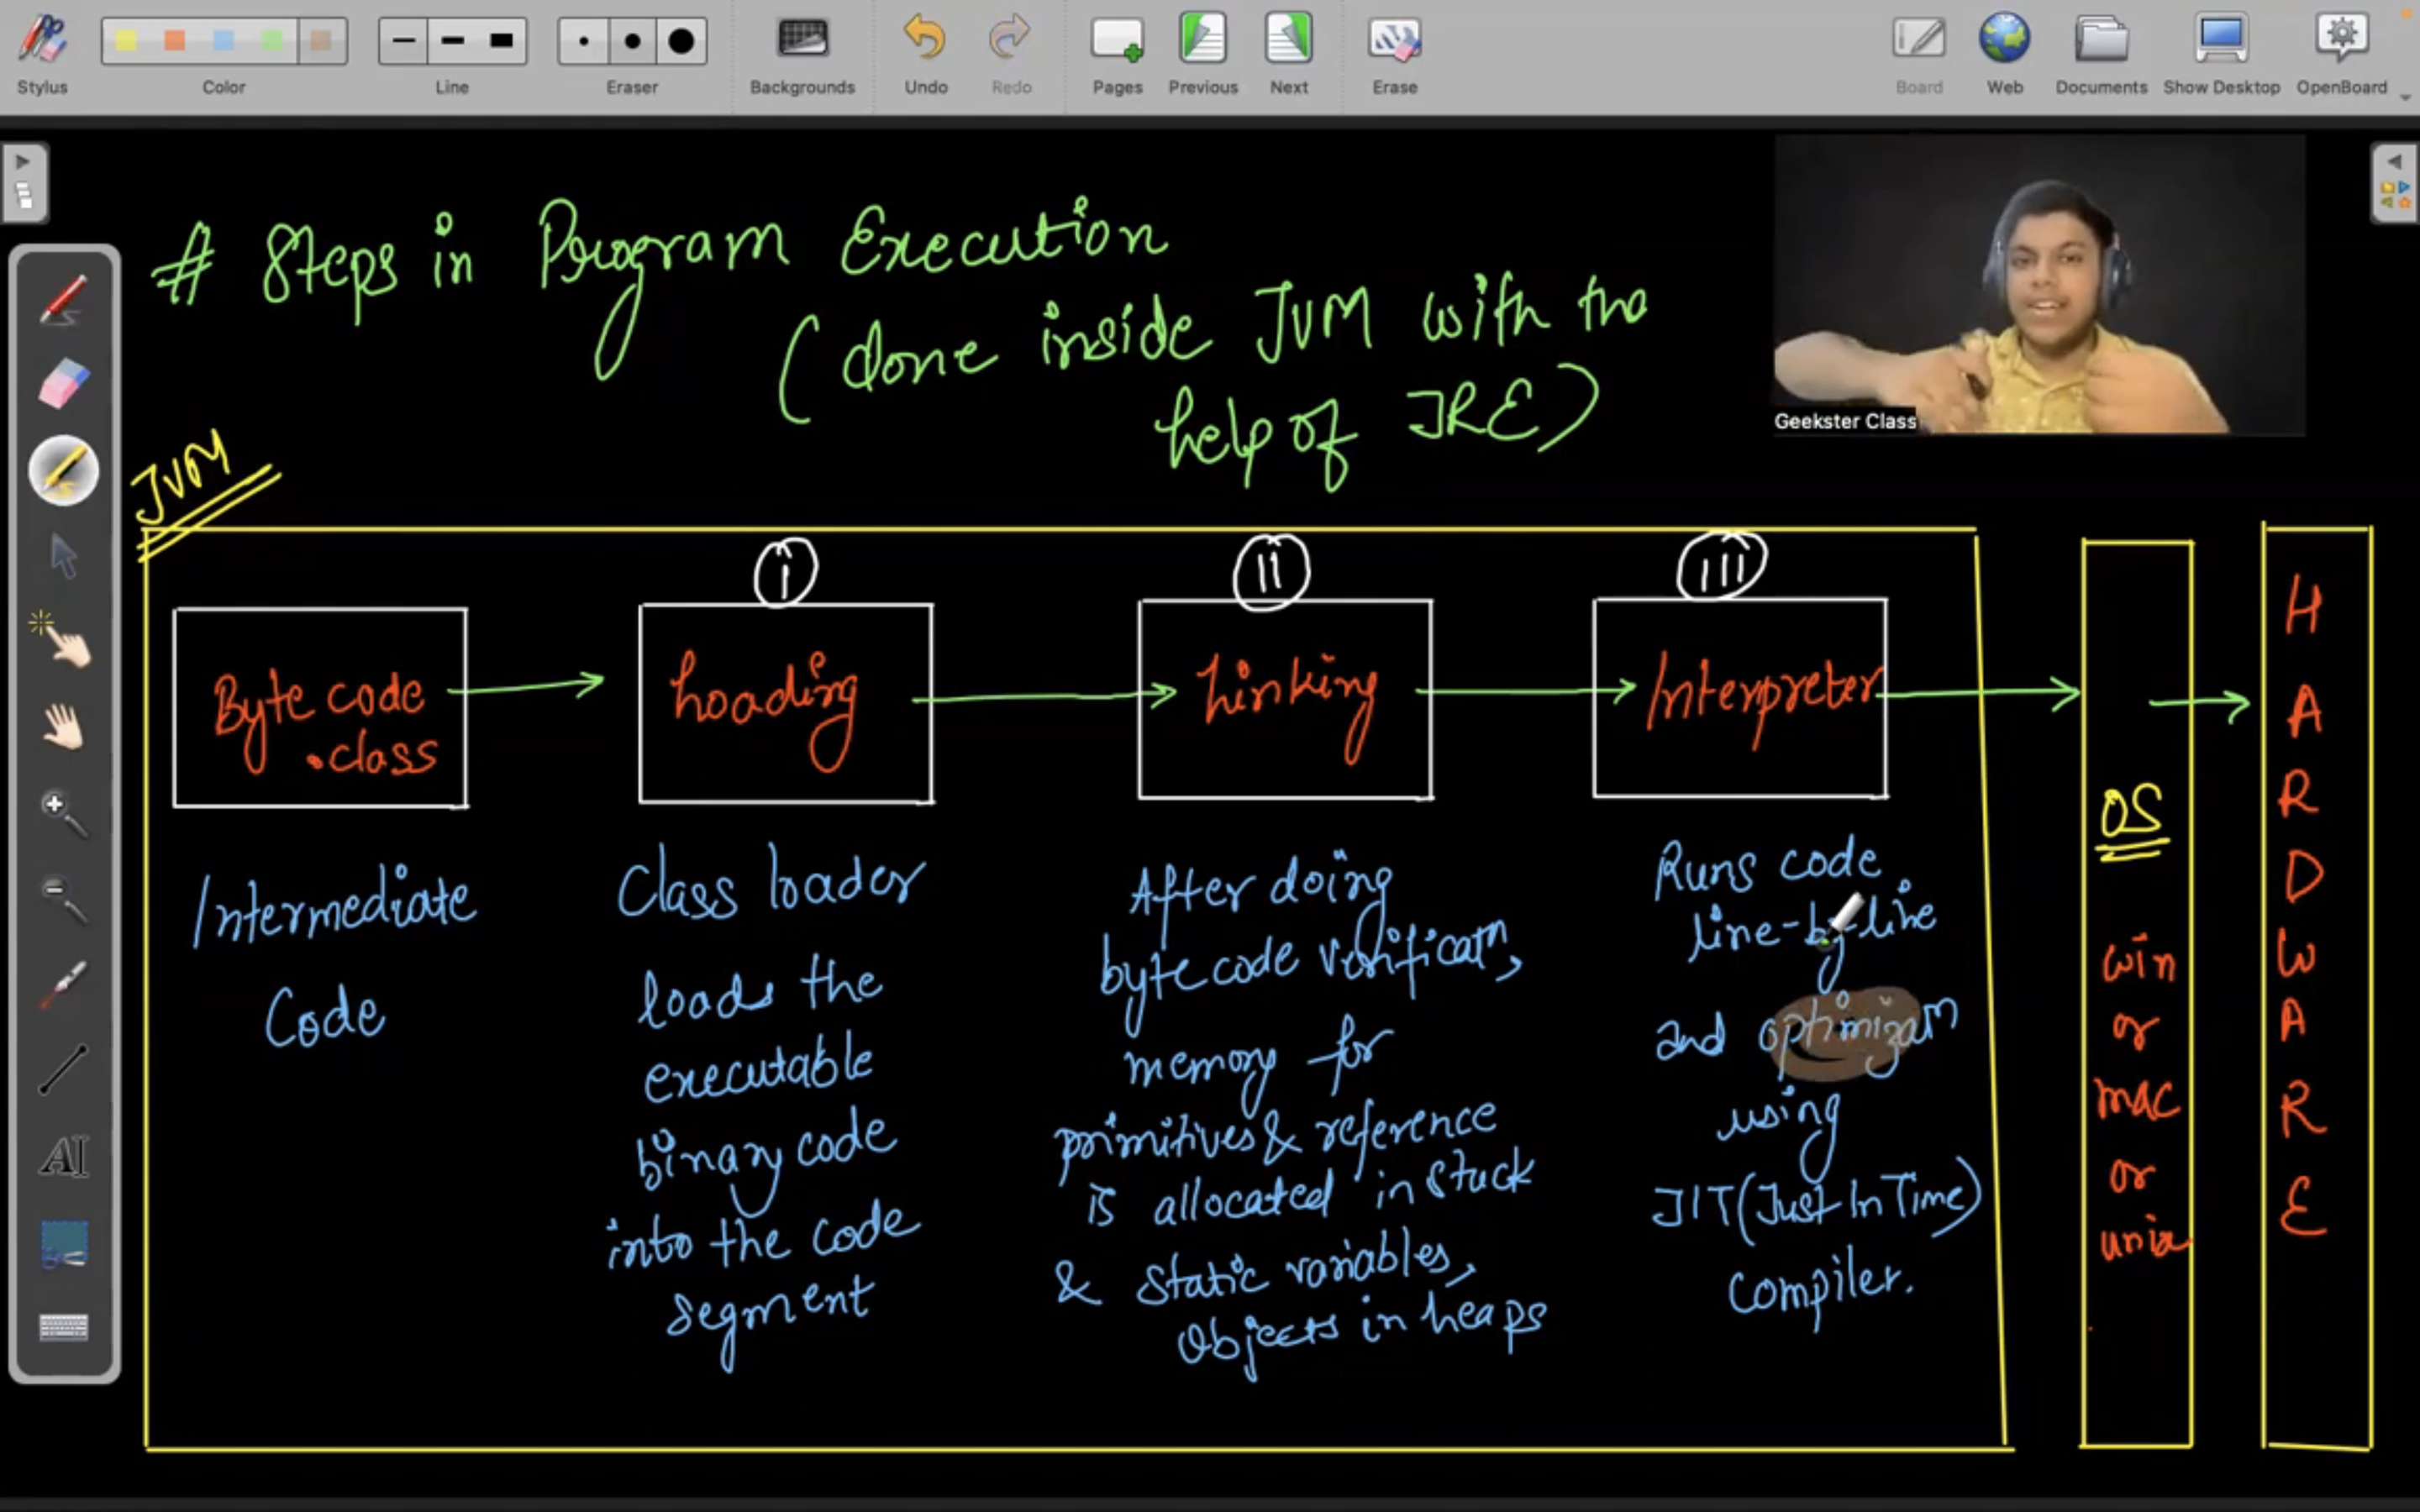 Stylus
Color
Line
Eraser
Backgrounds
Undo
Redo
Pages
Previous
Next
Erase
Board
Web
Documents
Show Desktop
OpenBoard
# Steps in Program Execution
(done inside JVM with the
help of JRE)
Geekster Class
JVM
i
ii
iii
Byte code
.class
Loading
Linking
Interpreter
Intermediate
Code
Class loader
loads the
executable
binary code
into the code
segment
After doing
byte code verificatn,
memory for
primitives & reference
is allocated in stack
& static variables,
Objects in heaps
Runs code
line-by-line
and optimizan
using
JIT (Just In Time)
compiler.
OS
win
or
mac
or
unix
HARDWARE
AI